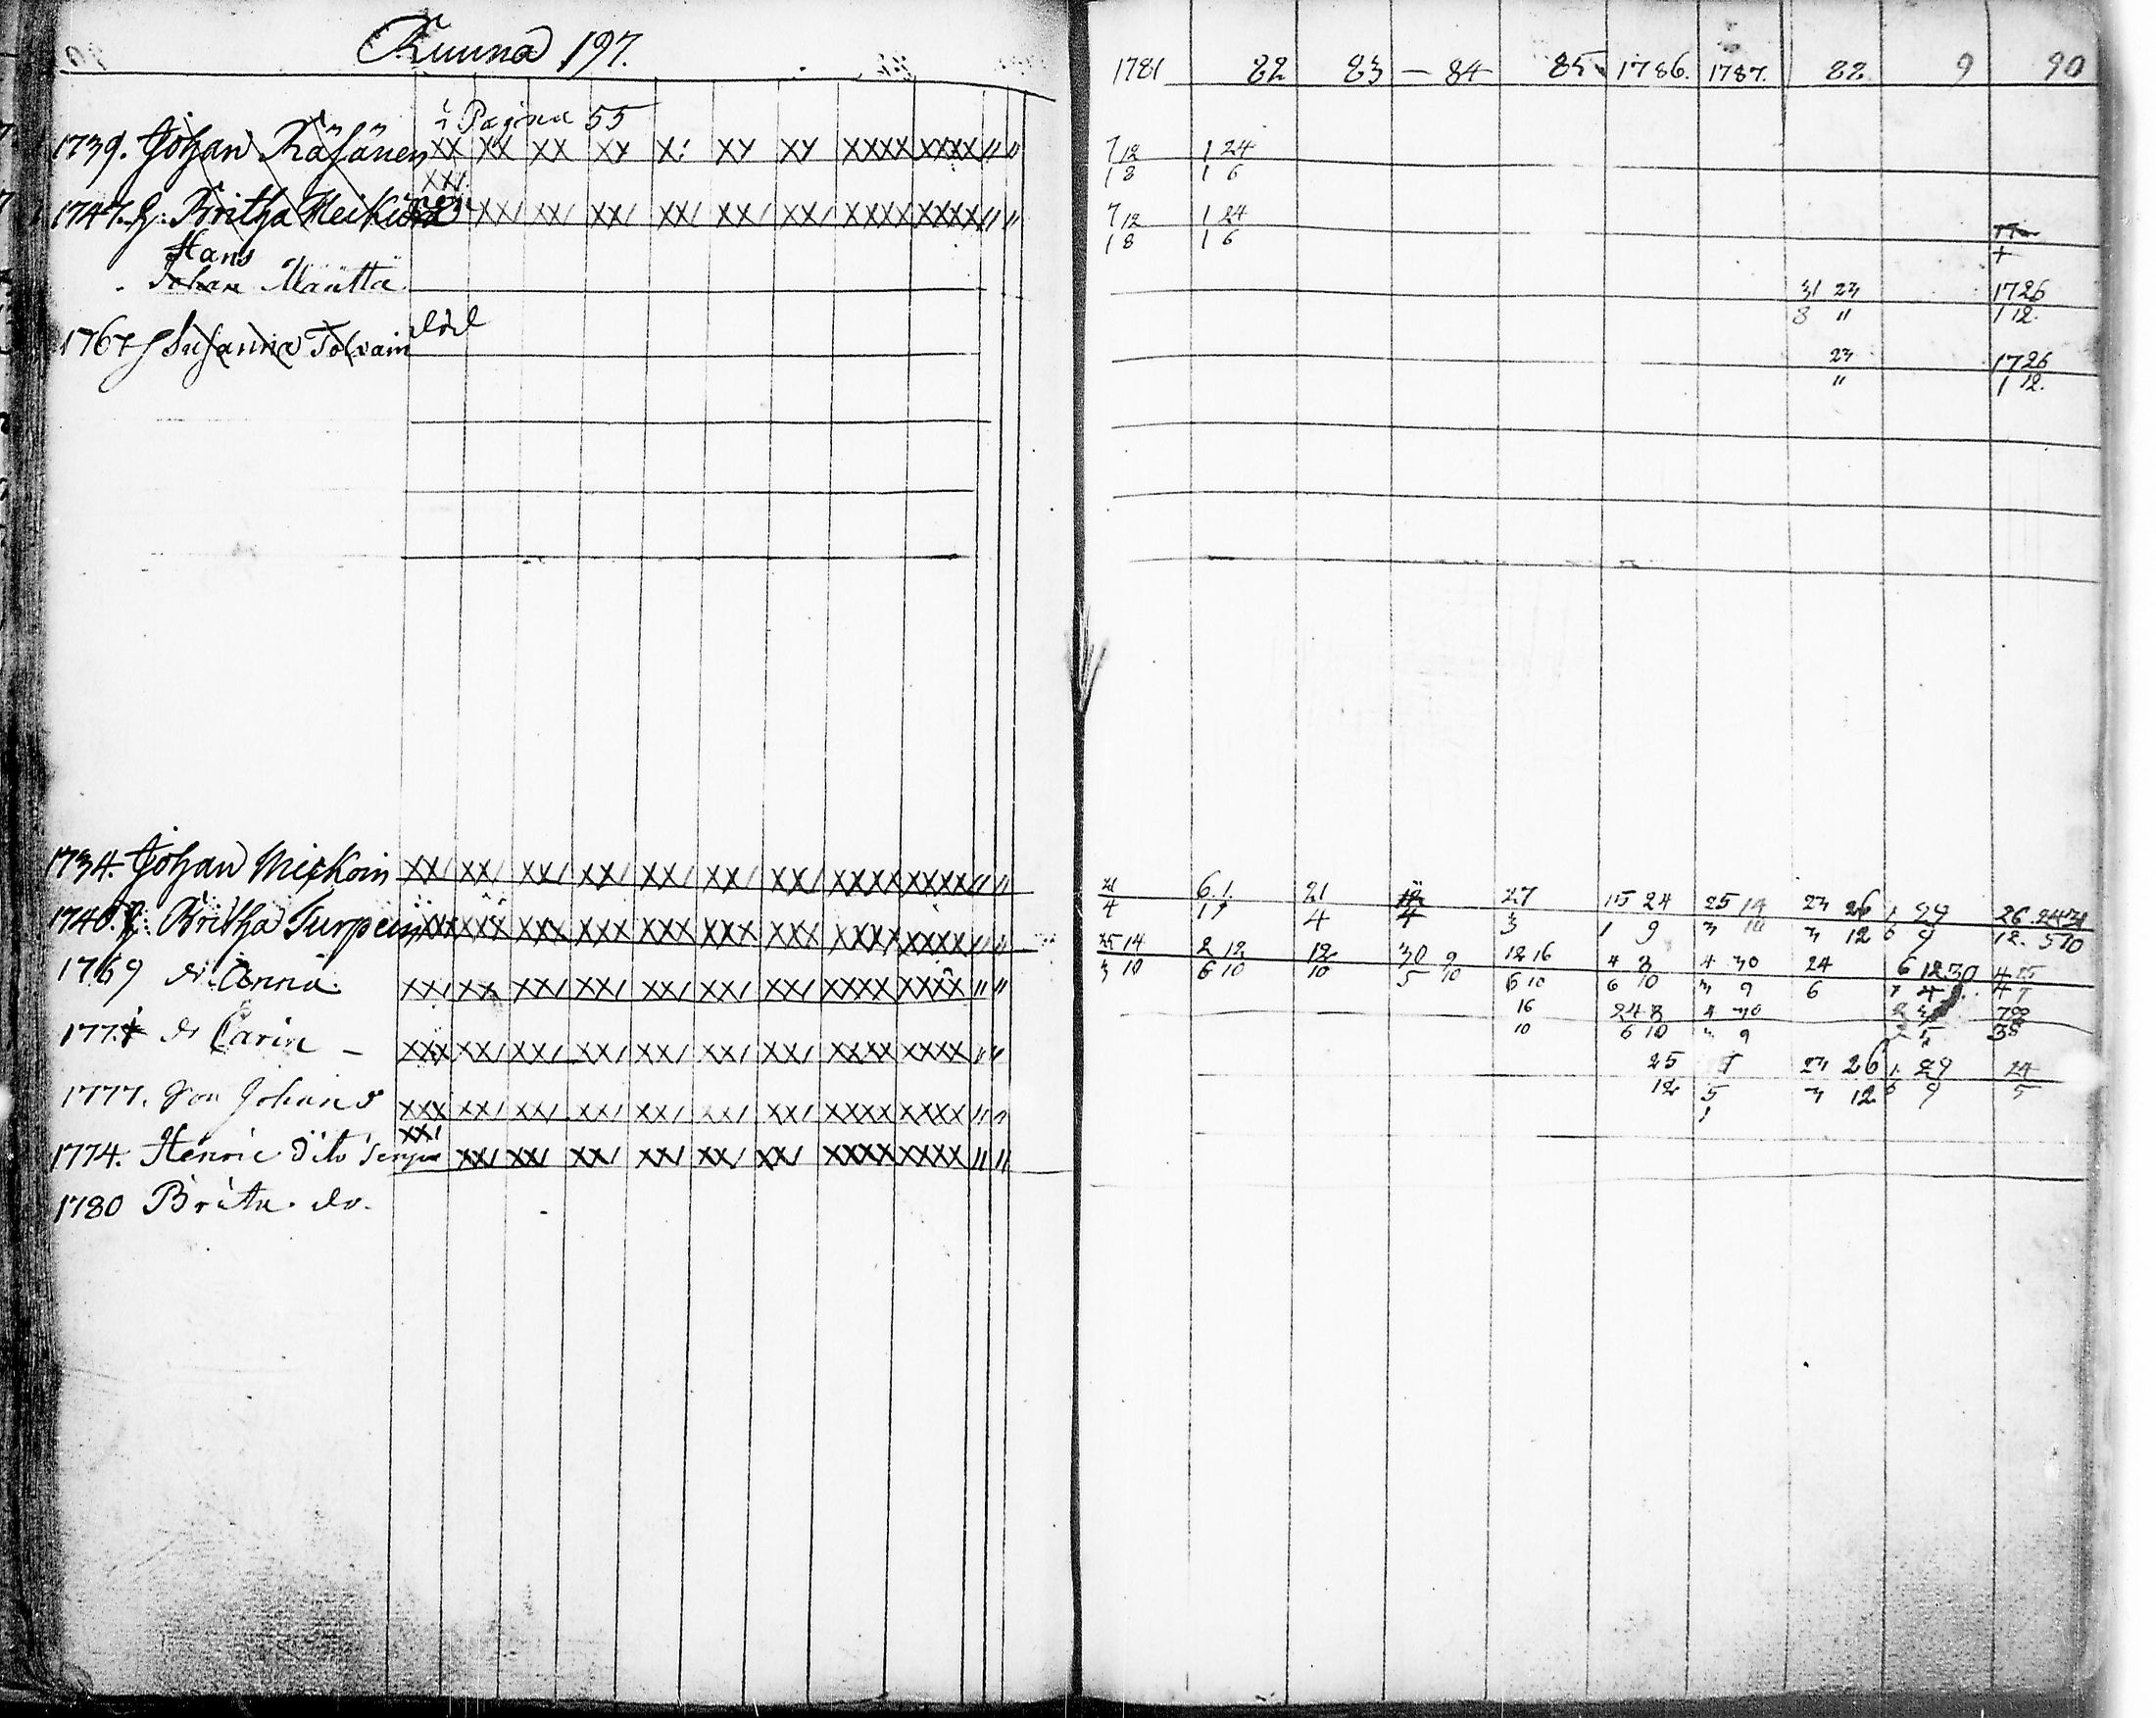 Kuuna 197.
i Pagina 55
1739. Johan Räsänen XX XX XX XX X: XX XX XXXX XXXX " "
XX/
1747. H. Britha Meikain XX/ XX/ XX/ XX/ XX/ XX/ XXXX XXXX " "
Hans
Johan Määttä
1767 H Susanna Tolvain död
1734. Johan Mickoin XX/ XX/ XX/ XX/ XX/ XX/ XX/ XXXX XXXX " "
1740. H. Britha Turpein XXX XXX XXX XXX XXX XXX XXX XXXX XXXX " "
1769 dr Anna XX/ XX XX/ XX/ XX/ XX/ XX/ XXXX XXXX " "
177 dr Carin – XXX XX/ XX/ XX/ XX/ XX/ XX/ XXXX XXXX " "
1777. Son Johan XXX XX/ XX/ XX/ XX/ XX/ XX/ XXXX XXXX " "
XX/
1774. Henric dito XX/ XX/ XX/ XX/ XX/ XX/ XXXX XXXX " "
1780 Brita. do.
1781 82 83 – 84 85 1786. 1787. 88 9 90
7 12 1 24
1 8 1 6
7 12 1 24
1 8 1 6
31 23 1726
8 " 1 12.
23 1726
" 1 12.
21 6. 1. 21 12 27 15 24 25 19 23 26 1. 29
4 4 4 3 1 9 3 12 6 9
25 14 2 12 12 30 9 12 16 4 8 4 30 24 6 12 30 4 25
3 10 6 10 10 5 10 6 10 6 10 3 9 6 4 4 7
16 24 8 4 30
10 6 10 3 9
25 23 26 1. 29 24
12 5 3 12 6 9 5
1